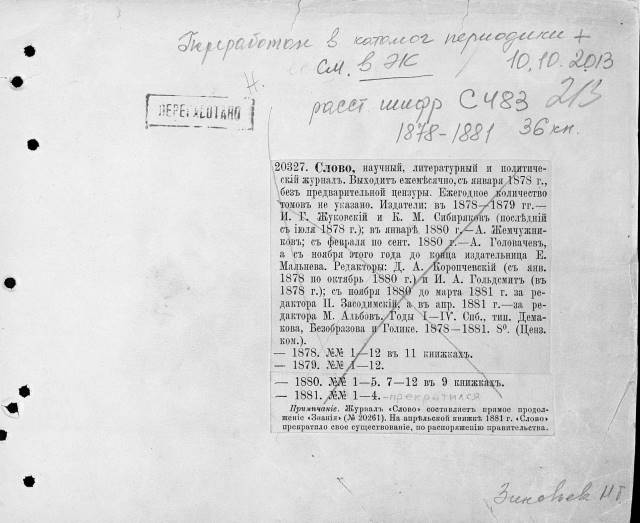 Переработан в каталог периодики +
см. в ЭК 10.10.2013
Н.
ПЕРЕРАБОТАНО
расст шифр С483 213
1878-1881 36 кн.
20327. Слово, научный, литературный и политиче-
скій журналъ. Выходитъ ежемѣсячно, съ января 1878 г.,
безъ предварительной цензуры. Ежегодное количество
томовъ не указано. Издатели: въ 1878—1879 гг.—
И. Г. Жуковскій и К. М. Сибиряковъ (послѣдній
съ іюля 1878 г.); въ январѣ 1880 г.—А. Жемчужни-
ковъ; съ февраля по сент. 1880 г.—А. Головачевъ,
а съ ноября этого года до конца издательница Е.
Мальнева. Редакторы: Д. А. Коропчевскій (съ янв.
1878 по октябрь 1880 г.) и И. А. Гольдсмитъ (въ
1878 г.); съ ноября 1880 до марта 1881 г. за ре-
дактора П. Засодимскій, а въ апр. 1881 г.—за ре-
дактора М. Альбовъ. Годы I—IV. Спб., тип. Дема-
кова, Безобразова и Голике. 1878—1881. 8⁰. (Ценз.
ком.).
— 1878. №№ 1—12 въ 11 книжкахъ.
— 1879. №№ 1—12.
— 1880. №№ 1—5. 7—12 въ 9 книжкахъ.
— 1881. №№ 1—4. -прекратился
Примѣчаніе. Журналъ «Слово» составляетъ прямое продол-
женіе «Знанія» (№ 20261). На апрѣльской книжкѣ 1881 г. «Слово»
прекратило свое существованіе, по распоряженію правительства.
Зиновьев